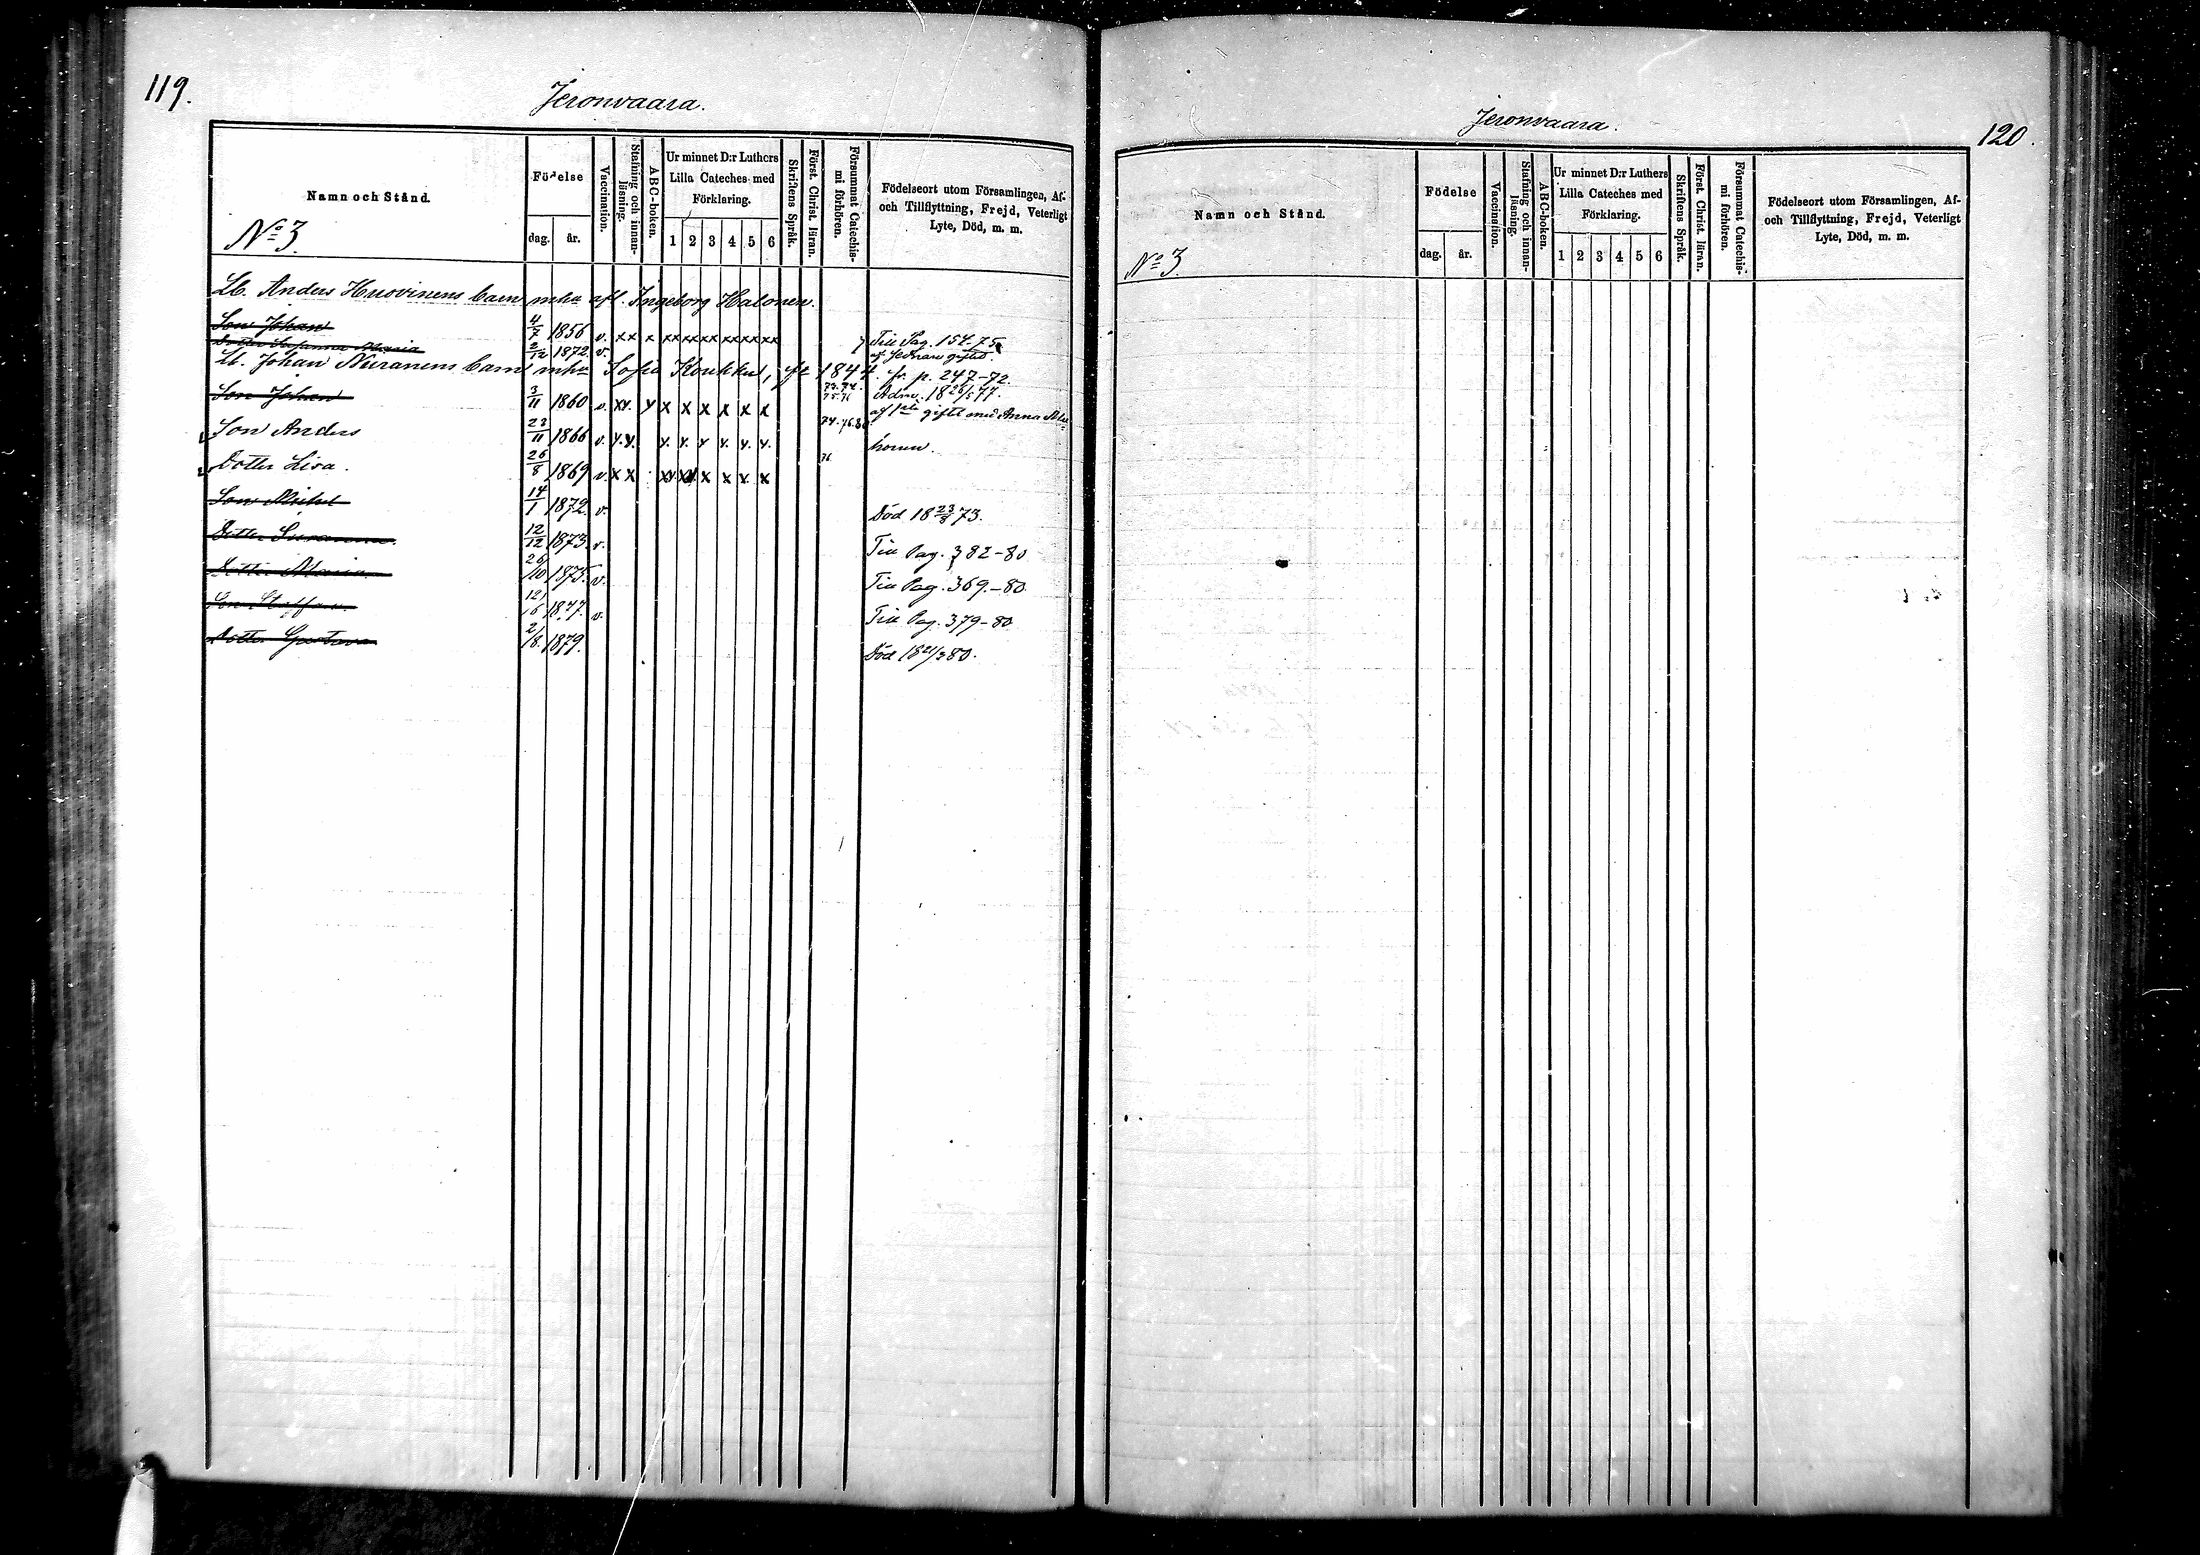 119.
Jeronvaara.
Namn och Stånd.
Födelse
dag. år.
Vaccination.
Stafning och innan-
läsning.
ABC-boken.
Ur minnet D:r Luthers
Lilla Cateches med
Förklaring.
1 2 3 4 5 6
Skriftens Språk.
Först. Christ. läran.
Försummat Catechis-
mi förhören.
Födelseort utom Församlingen, Af-
och Tillflyttning, Frejd, Veterligt
Lyte, Död, m. m.
No 3.
Lb. Anders Huovinens barn mha afl. Ingeborg Halonen.
Son Johan 4/7 1856 v. xx x xx xx xx xx xx xx Till Pag. 157.-75.
Dotter Susanna Maria 2/12 1872. v.
Lb. Johan Nuranens barn mha Sofia Koukku, ft 1844. fr. p. 247-72.
Son Johan 3/11 1860 v. xy. y x x x x x x 73.74. 75.76 Adm. 18 26/5 77.
af giftet med Anna
Son Anders 23/11 1866 v. y.y. y. y. y y. y. y. 74.76.80
Dotter Lisa. 26/8 1869 v. x x x x x x 76
Son Mikel 14/1 1872. v. Död 18 23/3 73.
Dotter Susanna. 12/12 1873. v. Till Pag. 382-80
Dotter Maria. 26/10 1875. v. Till Pag. 369.-80.
Son Staffan. 12/6 1877. v. Till Pag. 379-80
Dotter Gustava 2/8. 1879. Död 18 21/3 80.
Jeronvaara.
120.
Namn och Stånd.
Födelse
dag. år.
Vaccination.
Stafning och innan-
läsning.
ABC-boken.
Ur minnet D:r Luthers
Lilla Cateches med
Förklaring.
1 2 3 4 5 6
Skriftens Språk.
Först. Christ. läran.
Försummat Catechis-
mi förhören.
Födelseort utom Församlingen, Af-
och Tillflyttning, Frejd, Veterligt
Lyte, Död, m. m.
No 3.